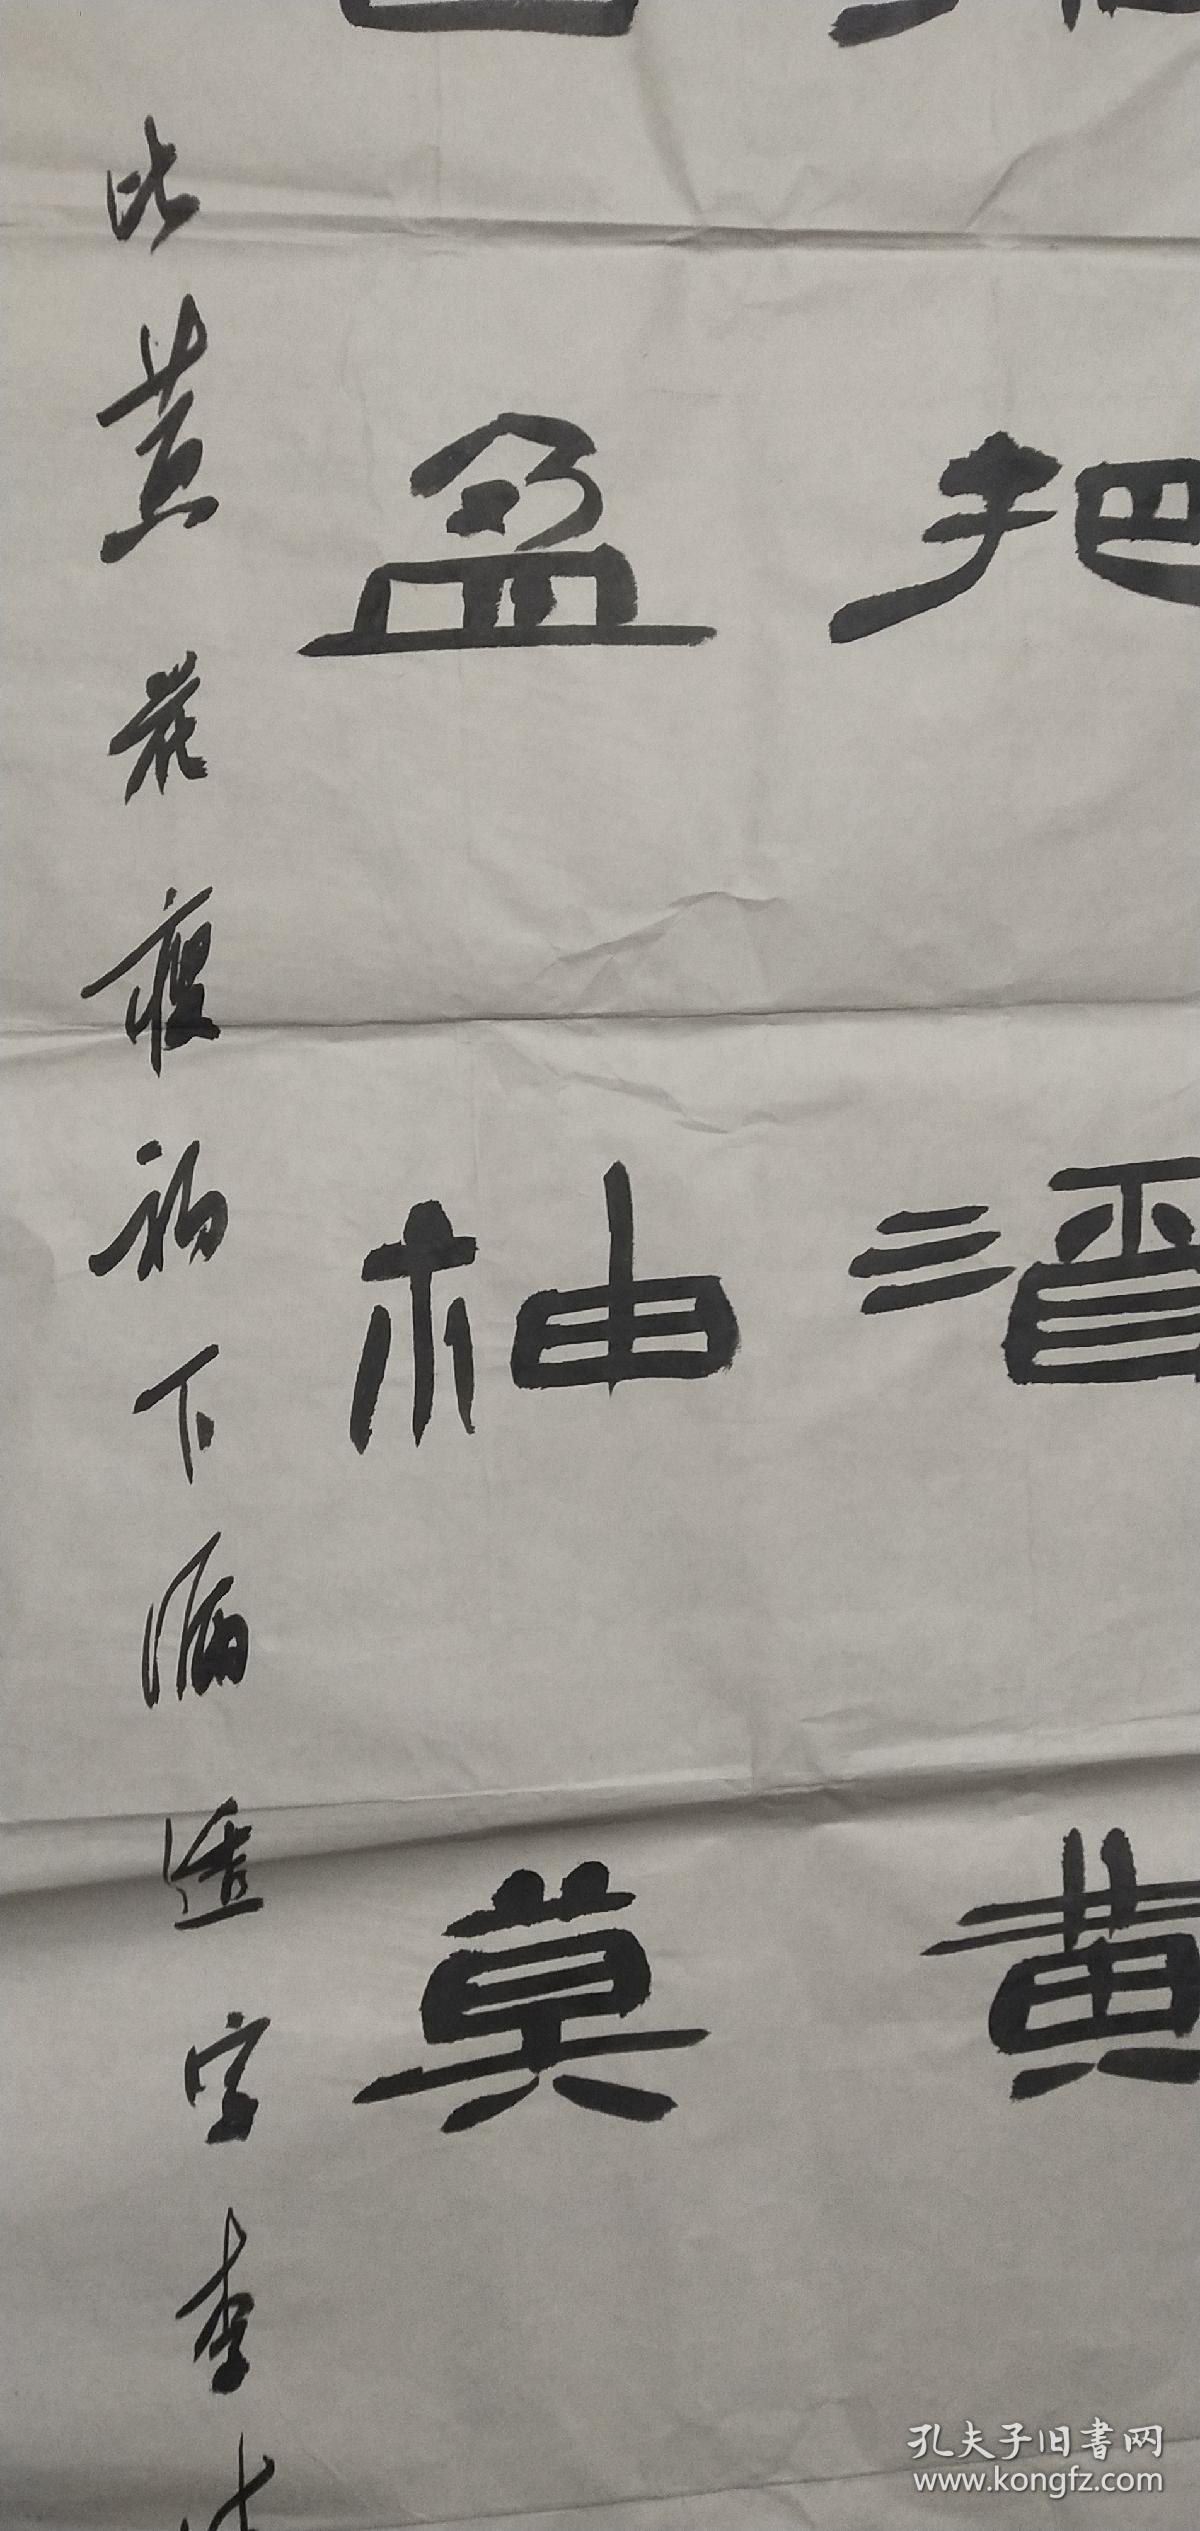 把酒黄
盈袖莫
比黄花瘦 下漏 字李
孔夫子旧书网
www.kongfz.com